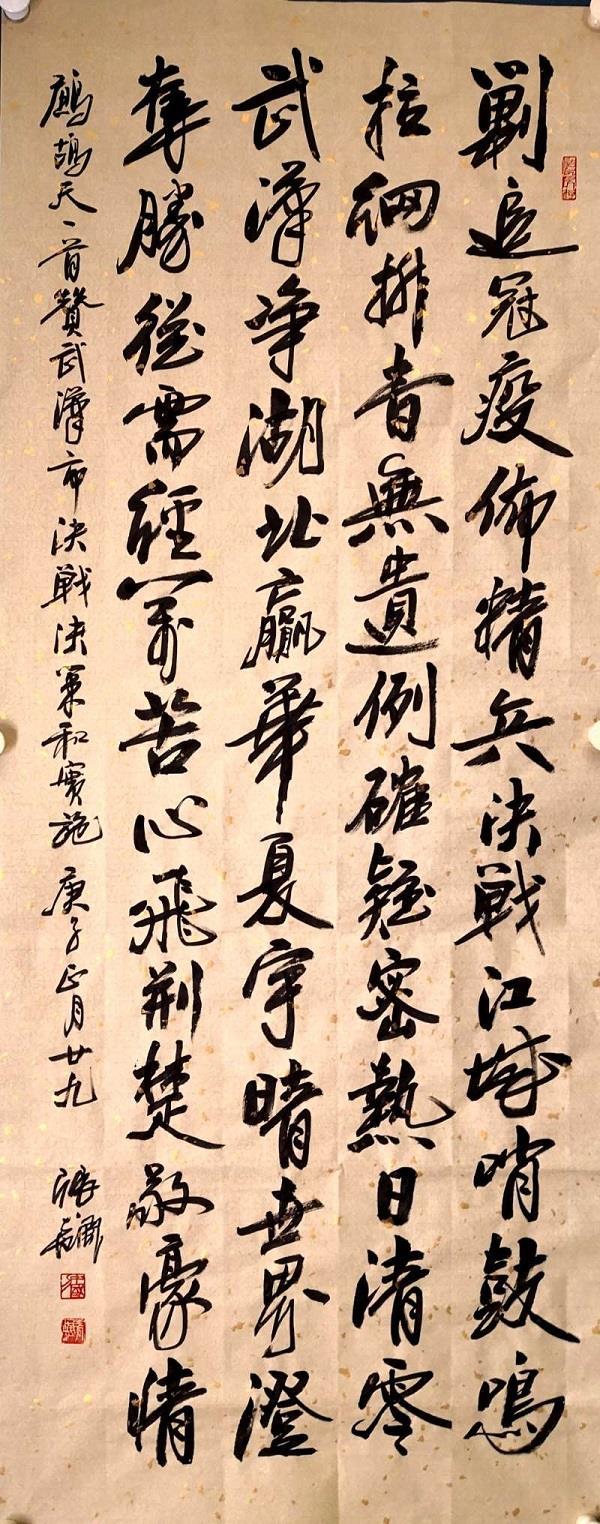 剿追冠疫佈精兵決戰江城哨鼓鳴
拉網排查無遺例確疑密熱日清零
武漢爭湖北贏華夏宇晴世界澄
奪勝從需經萬苦心飛荊楚敬豪情
鷓鴣天一首贊武漢市決戰決策和實施 庚子正月廿九